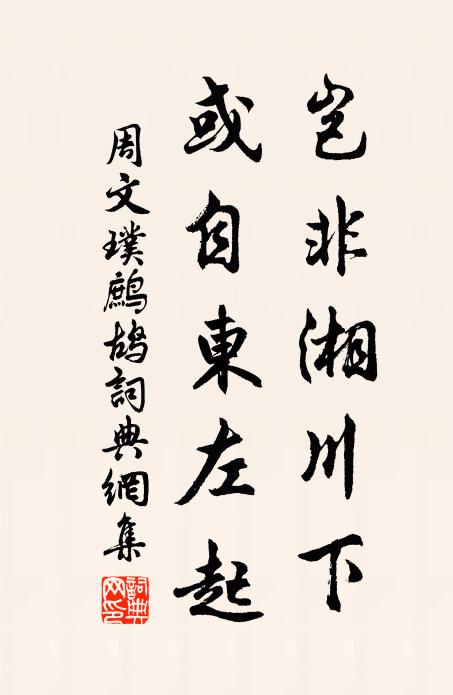 豈非湘川下
或自東左起
周文璞鷓鴣詞典網集
詞典網印